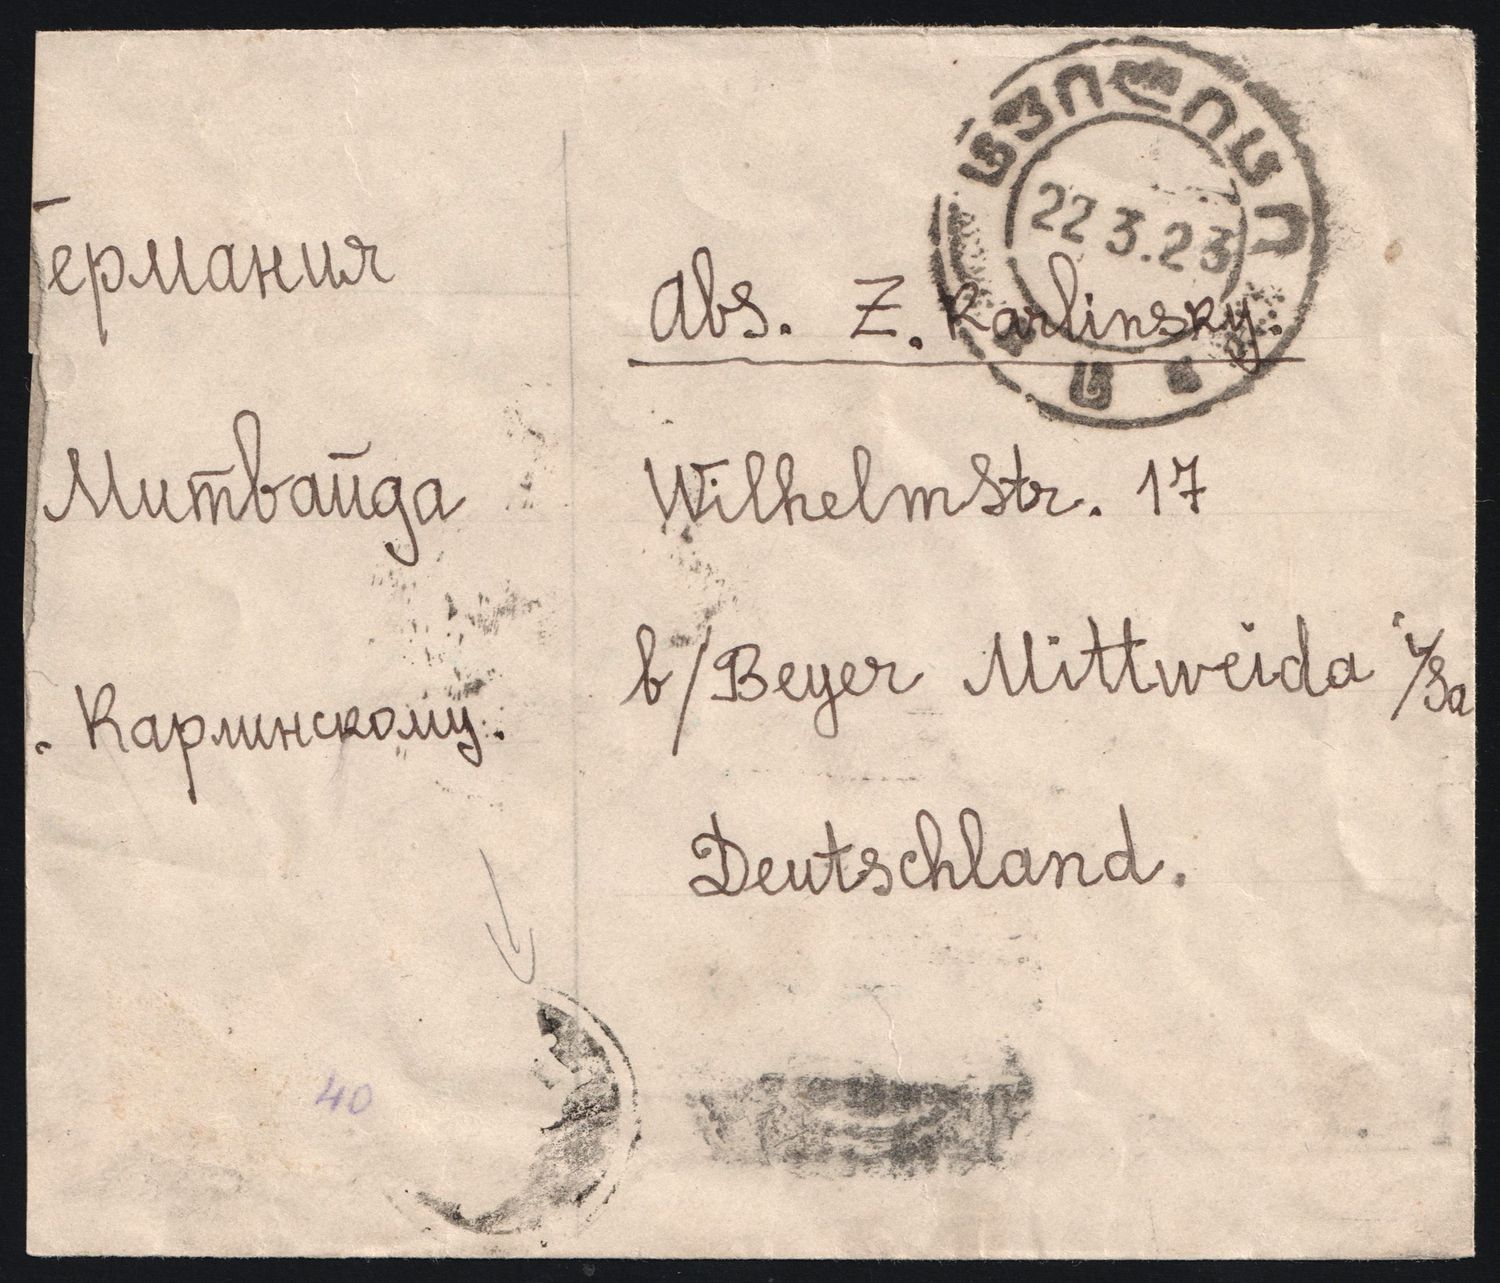 Германия
Митвайда
. Карлинскому.
ტფილისი
22 3.23
Abs. Z. Karlinsky.
Wilhelmstr. 17
b/Beyer Mittweida i/Sa
Deutschland.
40